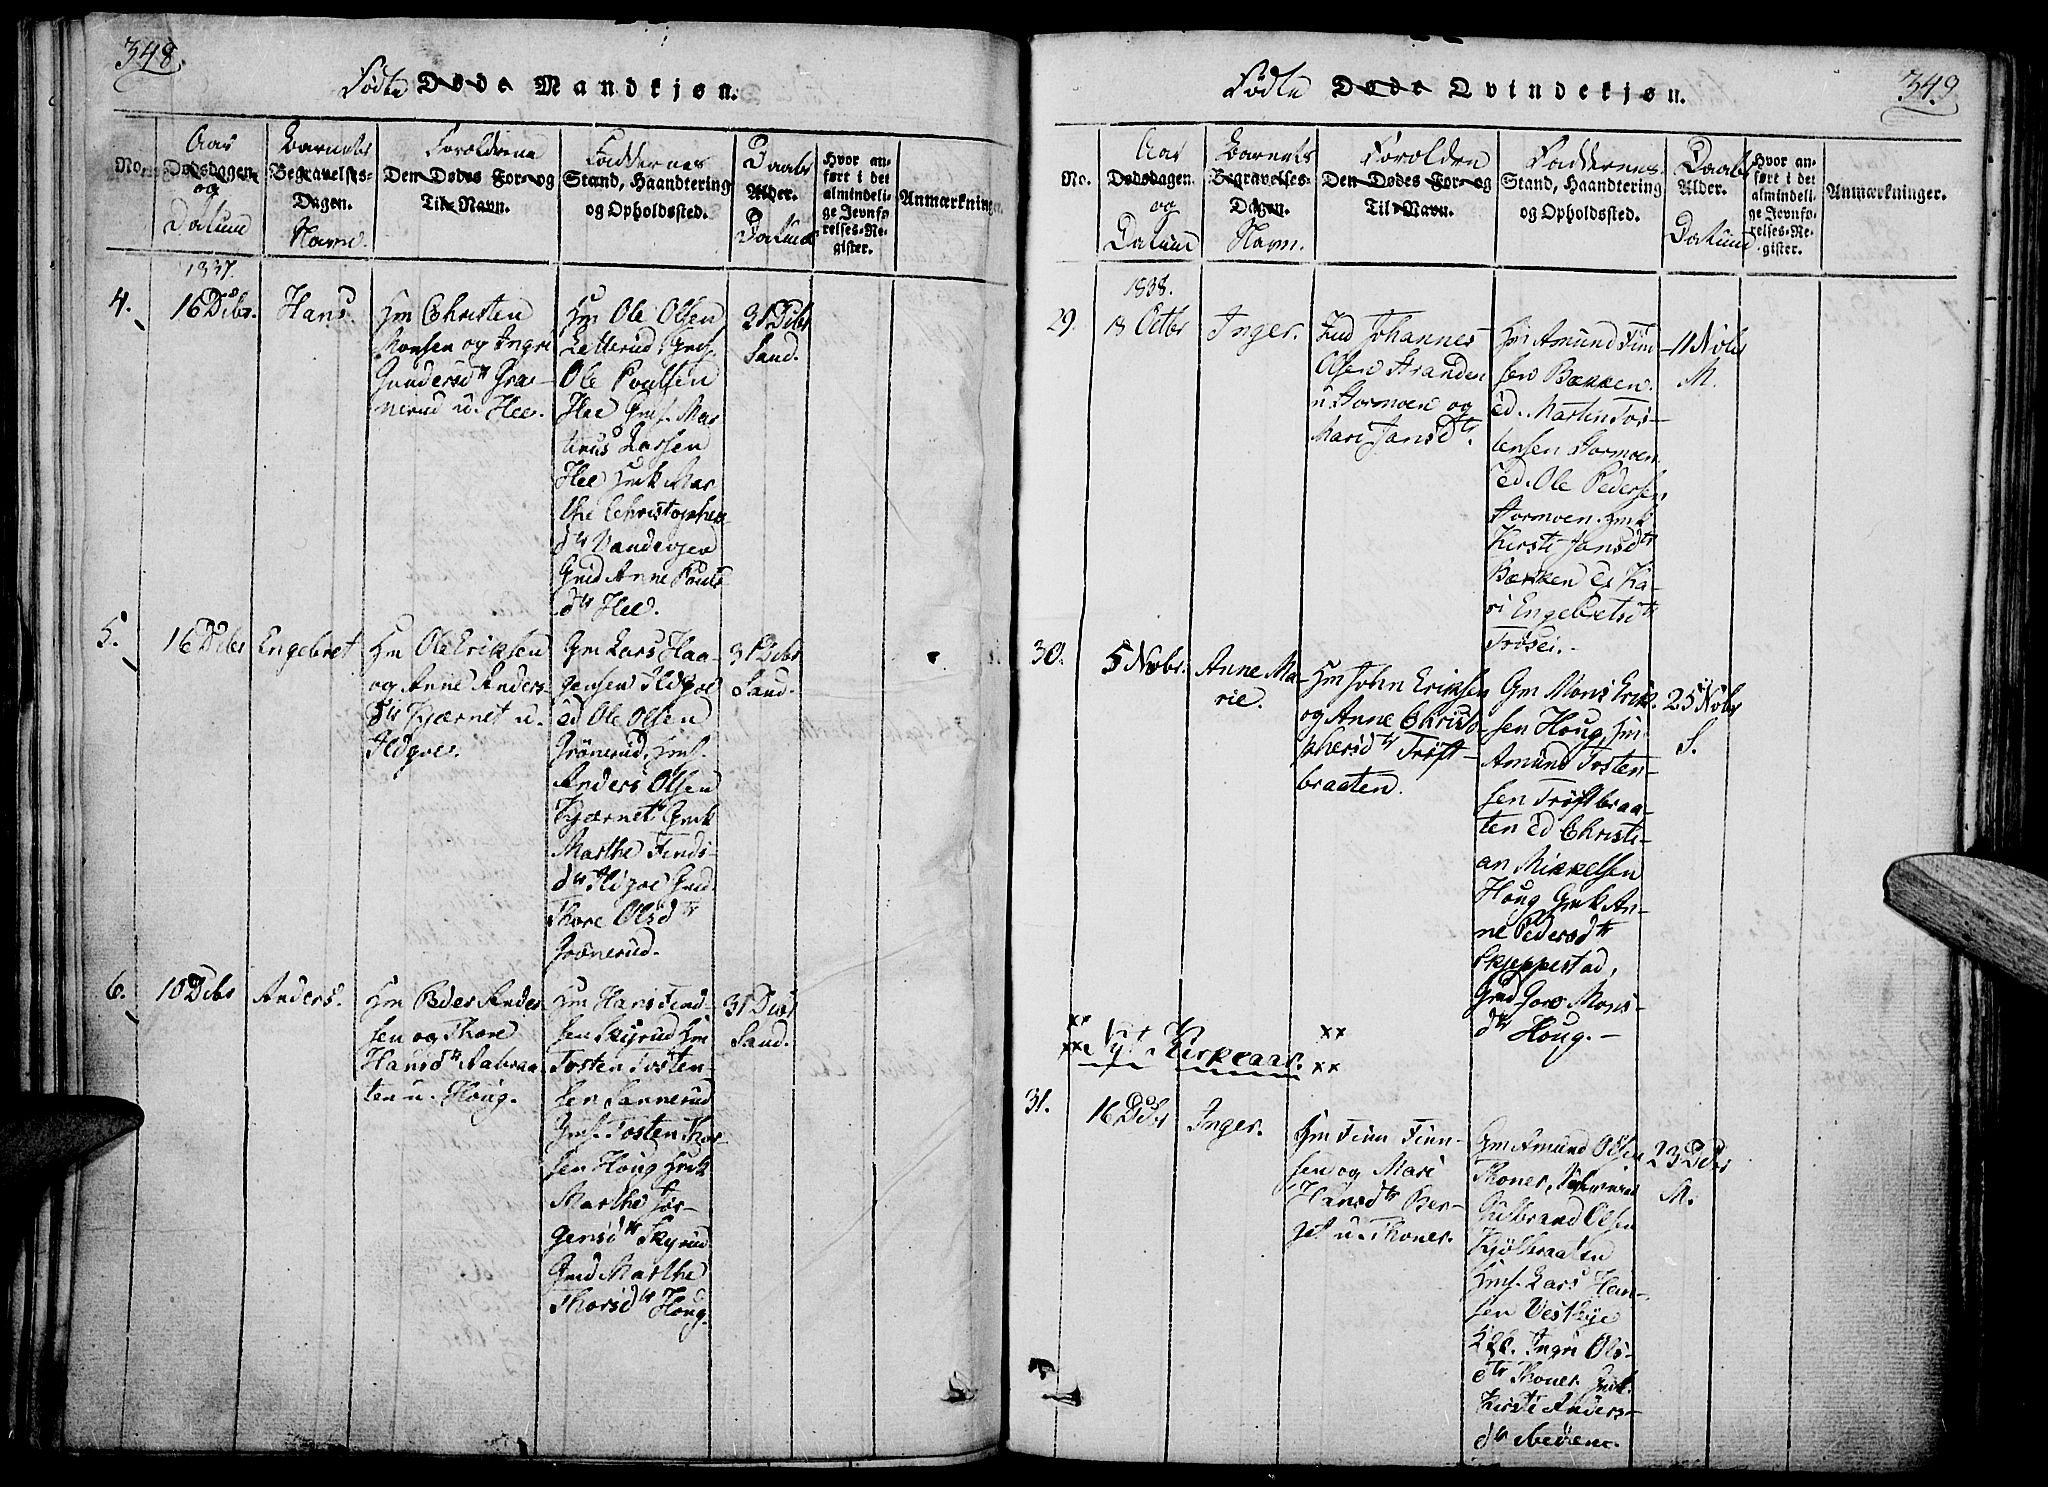 348.
Födte Døde Mandkjøn.
No.
Aar
Dødsdagen.
og
Datum
Barnets
Begravelses-
Dagen.
Navn.
Forældrene
Den Dødes For- og
Til-Navn.
Faddernes
Stand, Haandtering
og Opholdssted.
Daabs
Alder.
Datum
Hvor an-
ført i det
almindeli-
ge Jevnfø-
relses-Re-
gister.
Anmærkninger.
1837.
4.
16 Dcbr.
Hans
Hm Christen
Monsen og Ingri
Gundersdtr Gra-
nerud u. Hee.
Hm Ole Olsen
Letterud, Gmf.
Ole Poulsen
Hee Gmf. Mar
thinus Larsen
Hee Hmk Mar
the Christophers
dtr
Gmd Anne Pouls
dtr Hee.
31 Dcbr
Sand.
5.
16 Dcbr
Engebret
Hm Ole Eriksen
og Anne Anders-
dtr Kjærnet u.
Ildjvel.
Gm Lars Haa-
gensen
ed Ole Olsen
Grönerud, Hmf.
Anders Olsen
Kjærnet, Gmk
Marthe Finds-
dtr
Thore Olsdtr
Grönerud.
31 Dcbr
Sand.
6.
10 Dcbr
Anders.
Hm Peder Ander
sen og Thore
Hansdtr Aabraa-
ten u. Houg.
Hm Hans Find-
sen Skyrud Hm
Tosten Tosten-
sen Sannerud
Gmf. Tosten Thor
sen Houg Hmk
Marthe Jør-
gensdtr Skyrud
Gmd Marthe
Thorsdtr Houg.
31 Dcbr
Sand.
349
Födte Døde Qvindekjøn.
No.
Aar
Dødsdagen.
og
Datum
Barnets
Begravelses-
Dagen.
Navn.
Forælden
Den Dødes For- og
Til-Navn.
Faddernes
Stand, Haandtering
og Opholdssted.
Daabs
Alder.
Datum
Hvor an-
ført i det
almindeli-
ge Jevnfø-
relses-Re-
gister.
Anmærkninger.
1838.
29.
13 Octbr
Inger.
Ind Johannes
Olsen Stranden
u Stormoen og
Mari Jansdtr.
Hm Amund Fin
sen Bækken.
ed. Martin Tos-
tensen Stormoen
ed. Ole Pedersen
Stormoen. Hmk
Kersti Jansdtr
Bækken ed Ka-
ri Engebretsdtr
Trösei.-
11 Nobr
M.
30.
5 Nobr.
Anne Ma-
rie.
Hm John Eriksen
og Anne Christo-
phersdtr Tröft-
braaten.
Gm Mons Erik-
sen Houg, Hm
Amund Tosten-
sen Tröftbraa-
ten Ed Christi-
an Mikkelsen
Houg Gmk An-
ne Pedersdtr
Skjeppestad,
Gmd Goro Mons-
dtr Houg.-
25 Nobr
S.
xx
xx Nyt Kirkeaar.
xx
xx
31.
16 Dcbr
Inger.
Hm Finn Finn-
sen og Mari
Hansdtr Ber-
get u. Thoner.
Gm Amund Olsen
Thoner,
Gulbrand Olsen
Kjölbraaten
Hmf. Lars Han-
sen Vestbye
Ingri Ols-
dtr Thoner. Hmk.
Kersti Anders-
dtr
23 Dcbr
M.